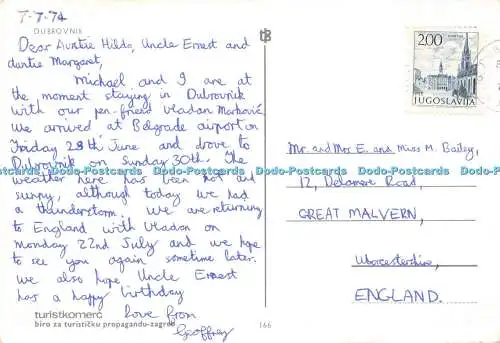 7-7-74
DUBROVNIK
Dear Auntie Hilda, Uncle Ernest and
Auntie Margaret,
Michael and I are at
the moment staying in Dubrovnik
with our pen-friend Vladan Marković.
We arrived at Belgrade airport on
Friday 28th June and drove to
Dubrovnik on Sunday 30th. The
weather here has been hot and
sunny, although today we had
a thunderstorm. We are returning
to England with Vladan on
Monday 22nd July and we hope
to see you again sometime later.
We also hope Uncle Ernest
has a happy birthday
Love from
Geoffrey
turistkomerc
biro za turističku propagandu-zagreb
166
2.00
JUGOSLAVIJA
Mr. and Mrs E. and Miss M. Bailey,
12, Delamere Road,
GREAT MALVERN,
Worcestershire,
ENGLAND.
Dodo-Postcards Dodo-Postcards Dodo-Postcards Dodo-Postcards Dodo-Postcards